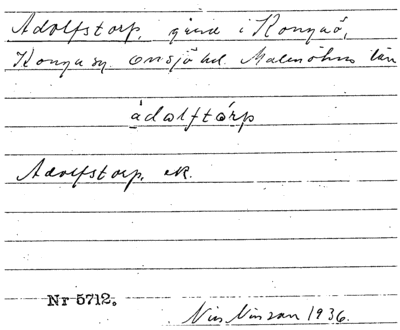 Adolfstorp, gård i Konga,
Konga sn. Onsjö hd. Malmöhus län
àdɑlftɔ́rp
Adolfstorp, ek.
Nr 5712.
Nils Nilsson 1936.